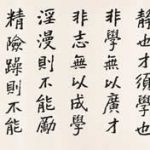 靜也才須學也
非學無以廣才
非志無以成學
淫漫則不能勵
精險躁則不能